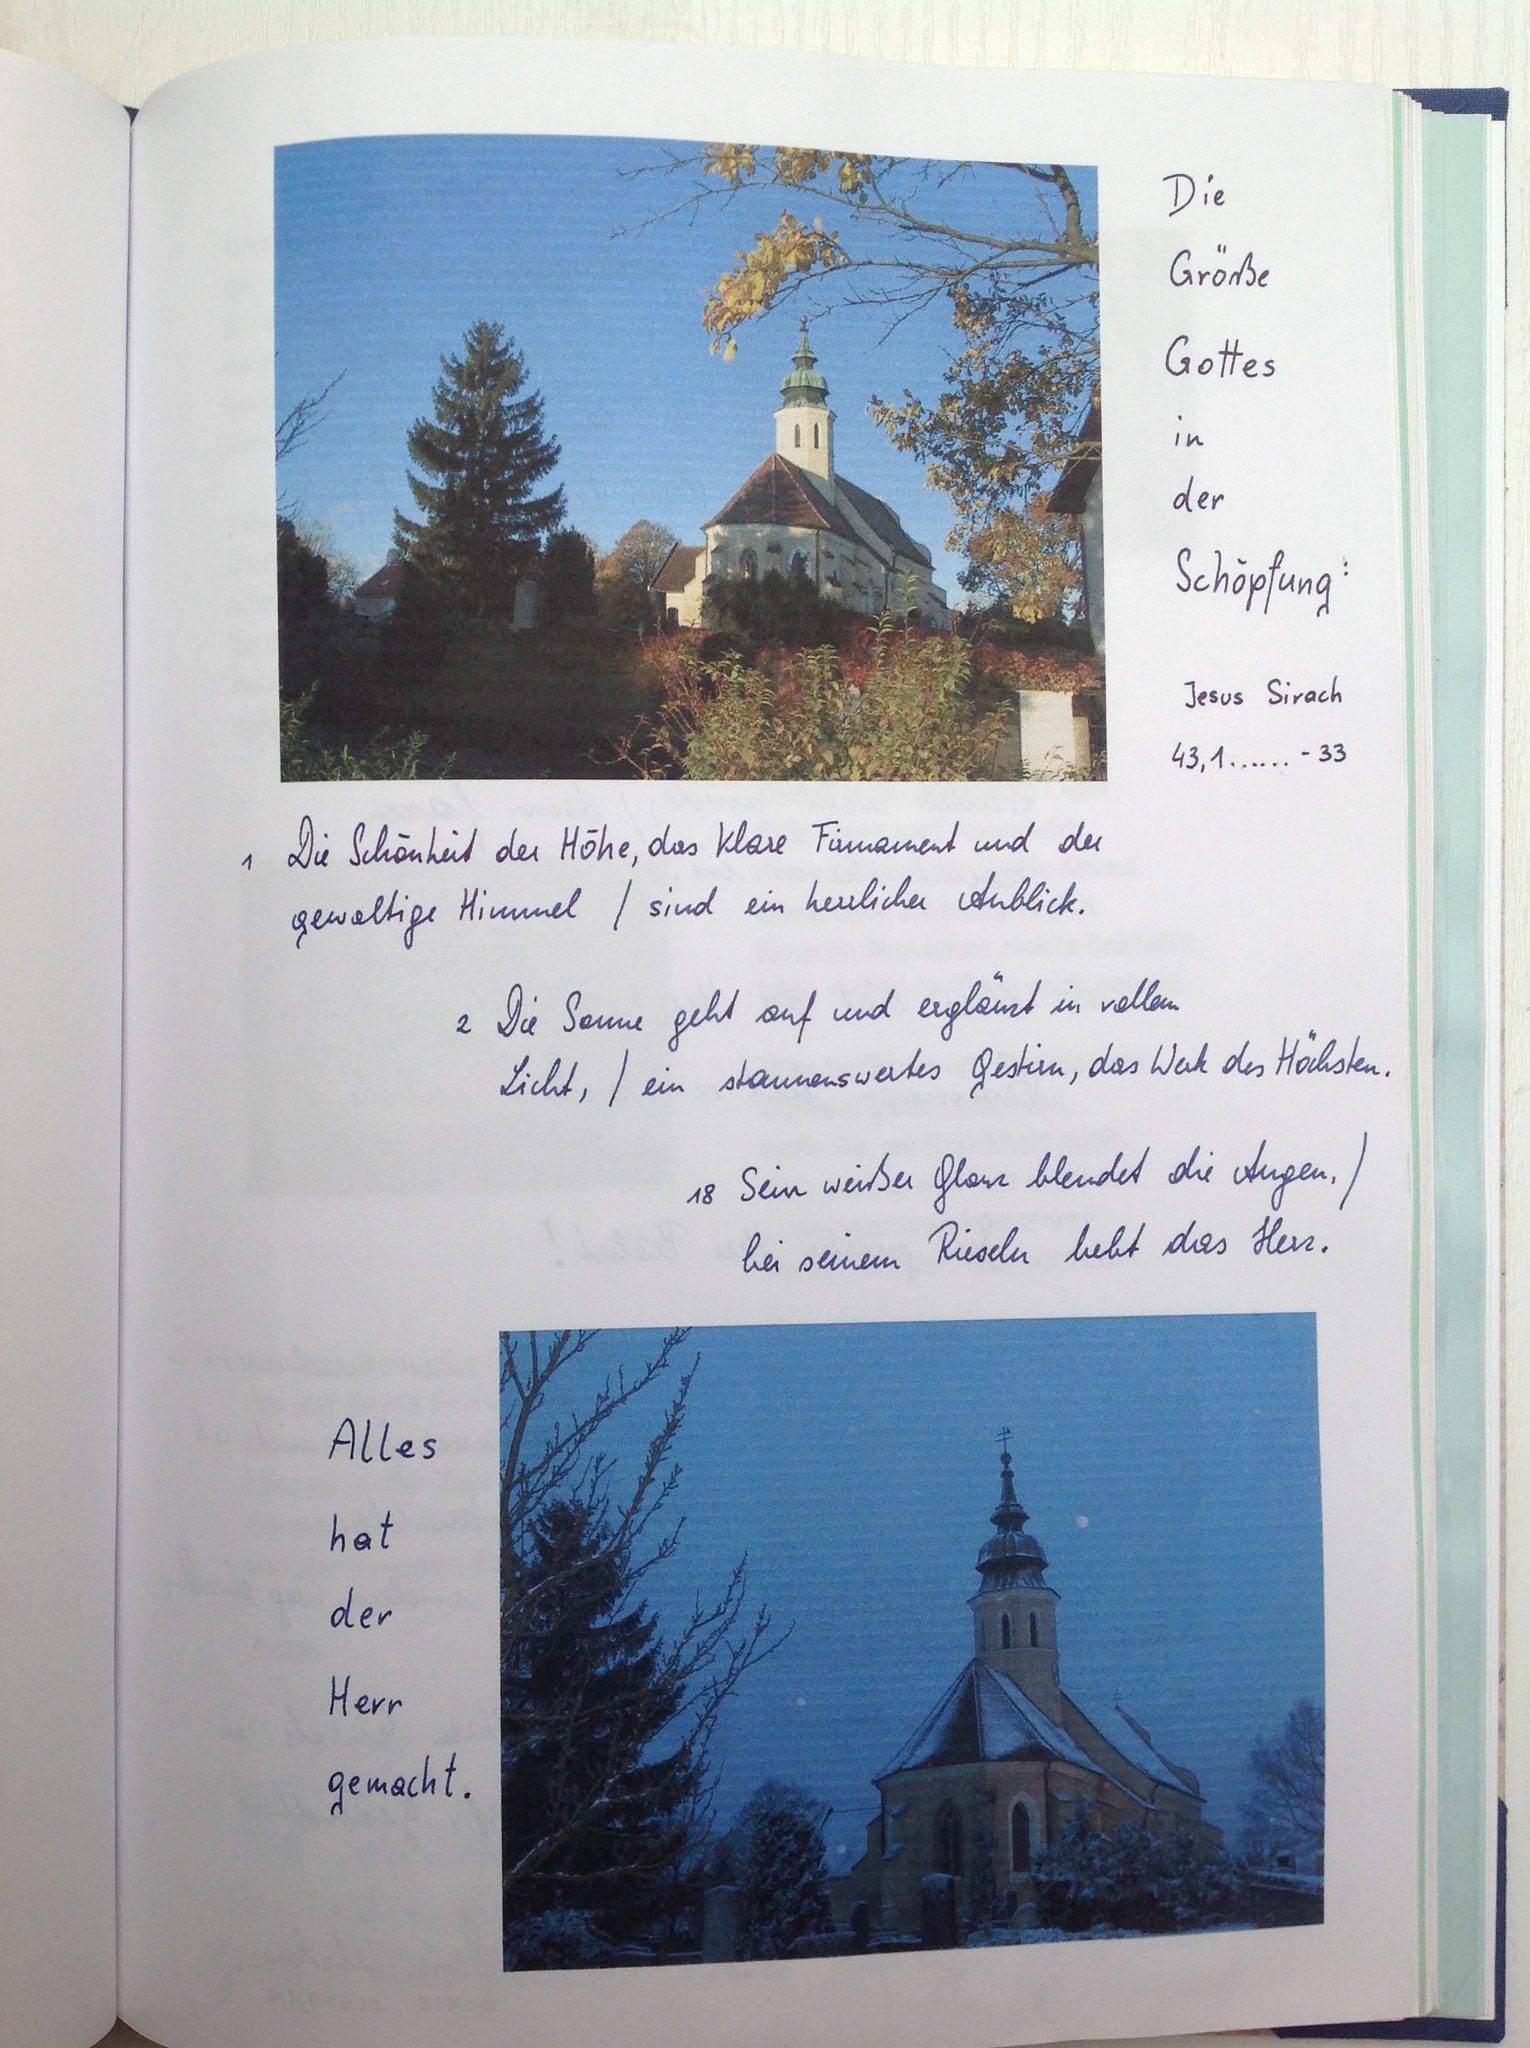 Die
Größe
Gottes
in
der
Schöpfung:
Jesus Sirach
43,1...... - 33
1 Die Schönheit der Höhe, das klare Firmament und der
gewaltige Himmel / sind ein herrlicher Anblick.
2 Die Sonne geht auf und erglänzt in vollem
Licht, / ein staunenswertes Gestirn, das Werk des Höchsten.
18 Sein weißer Glanz blendet die Augen, /
bei seinem Rieseln bebt das Herz.
Alles
hat
der
Herr
gemacht.